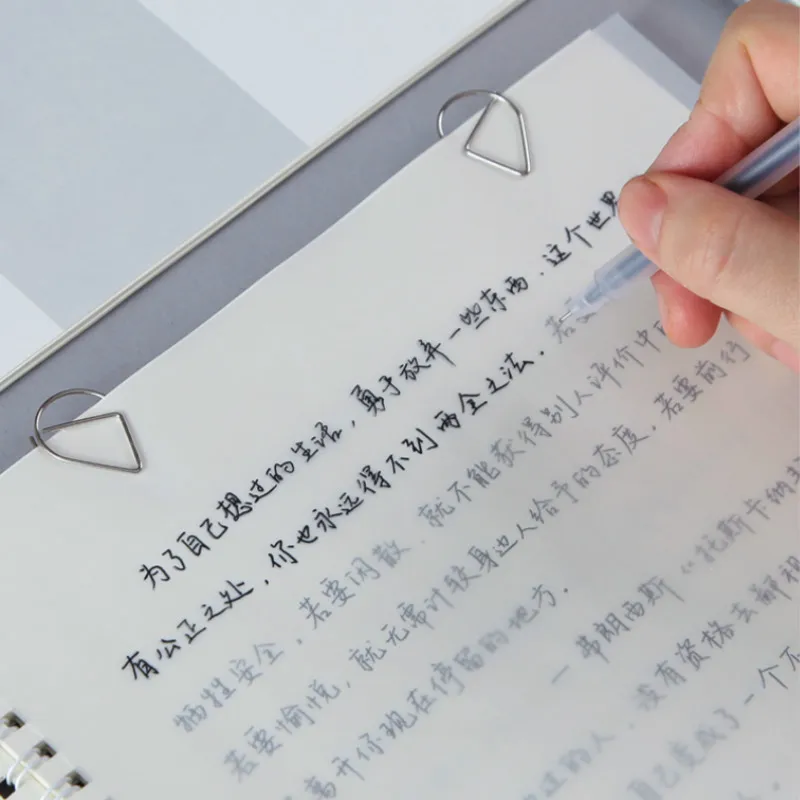 为了自己想过的生活，勇于放弃一些东西．这个世界
有公正之处，你也永远得不到两全之法．若要
牺牲安全．若要闲散．就不能获得别人评价中的
若要愉悦，就无需计较身边人给予的态度．若要前行
离开你现在停留的地方．
—弗朗西斯《托斯卡纳
过的人．没有资格去鄙视
自己变成了一个不